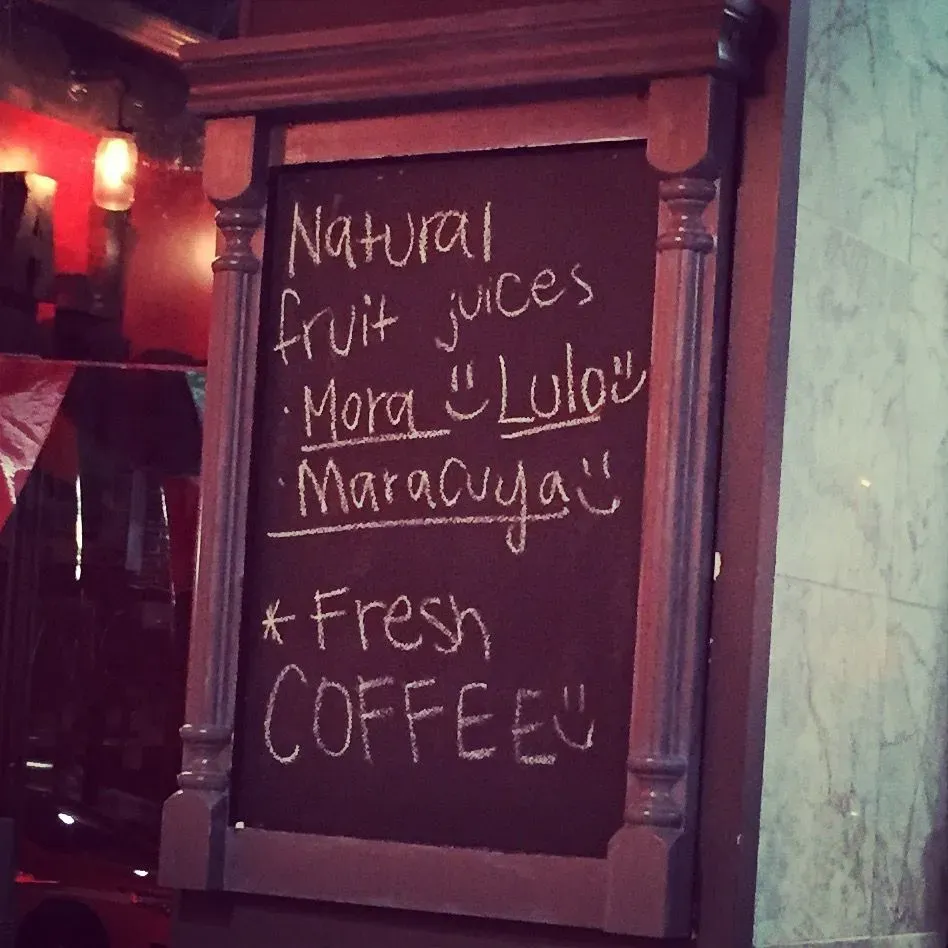 Natural
fruit juices
· Mora Lulo
· Maracuya
* Fresh
COFFEE